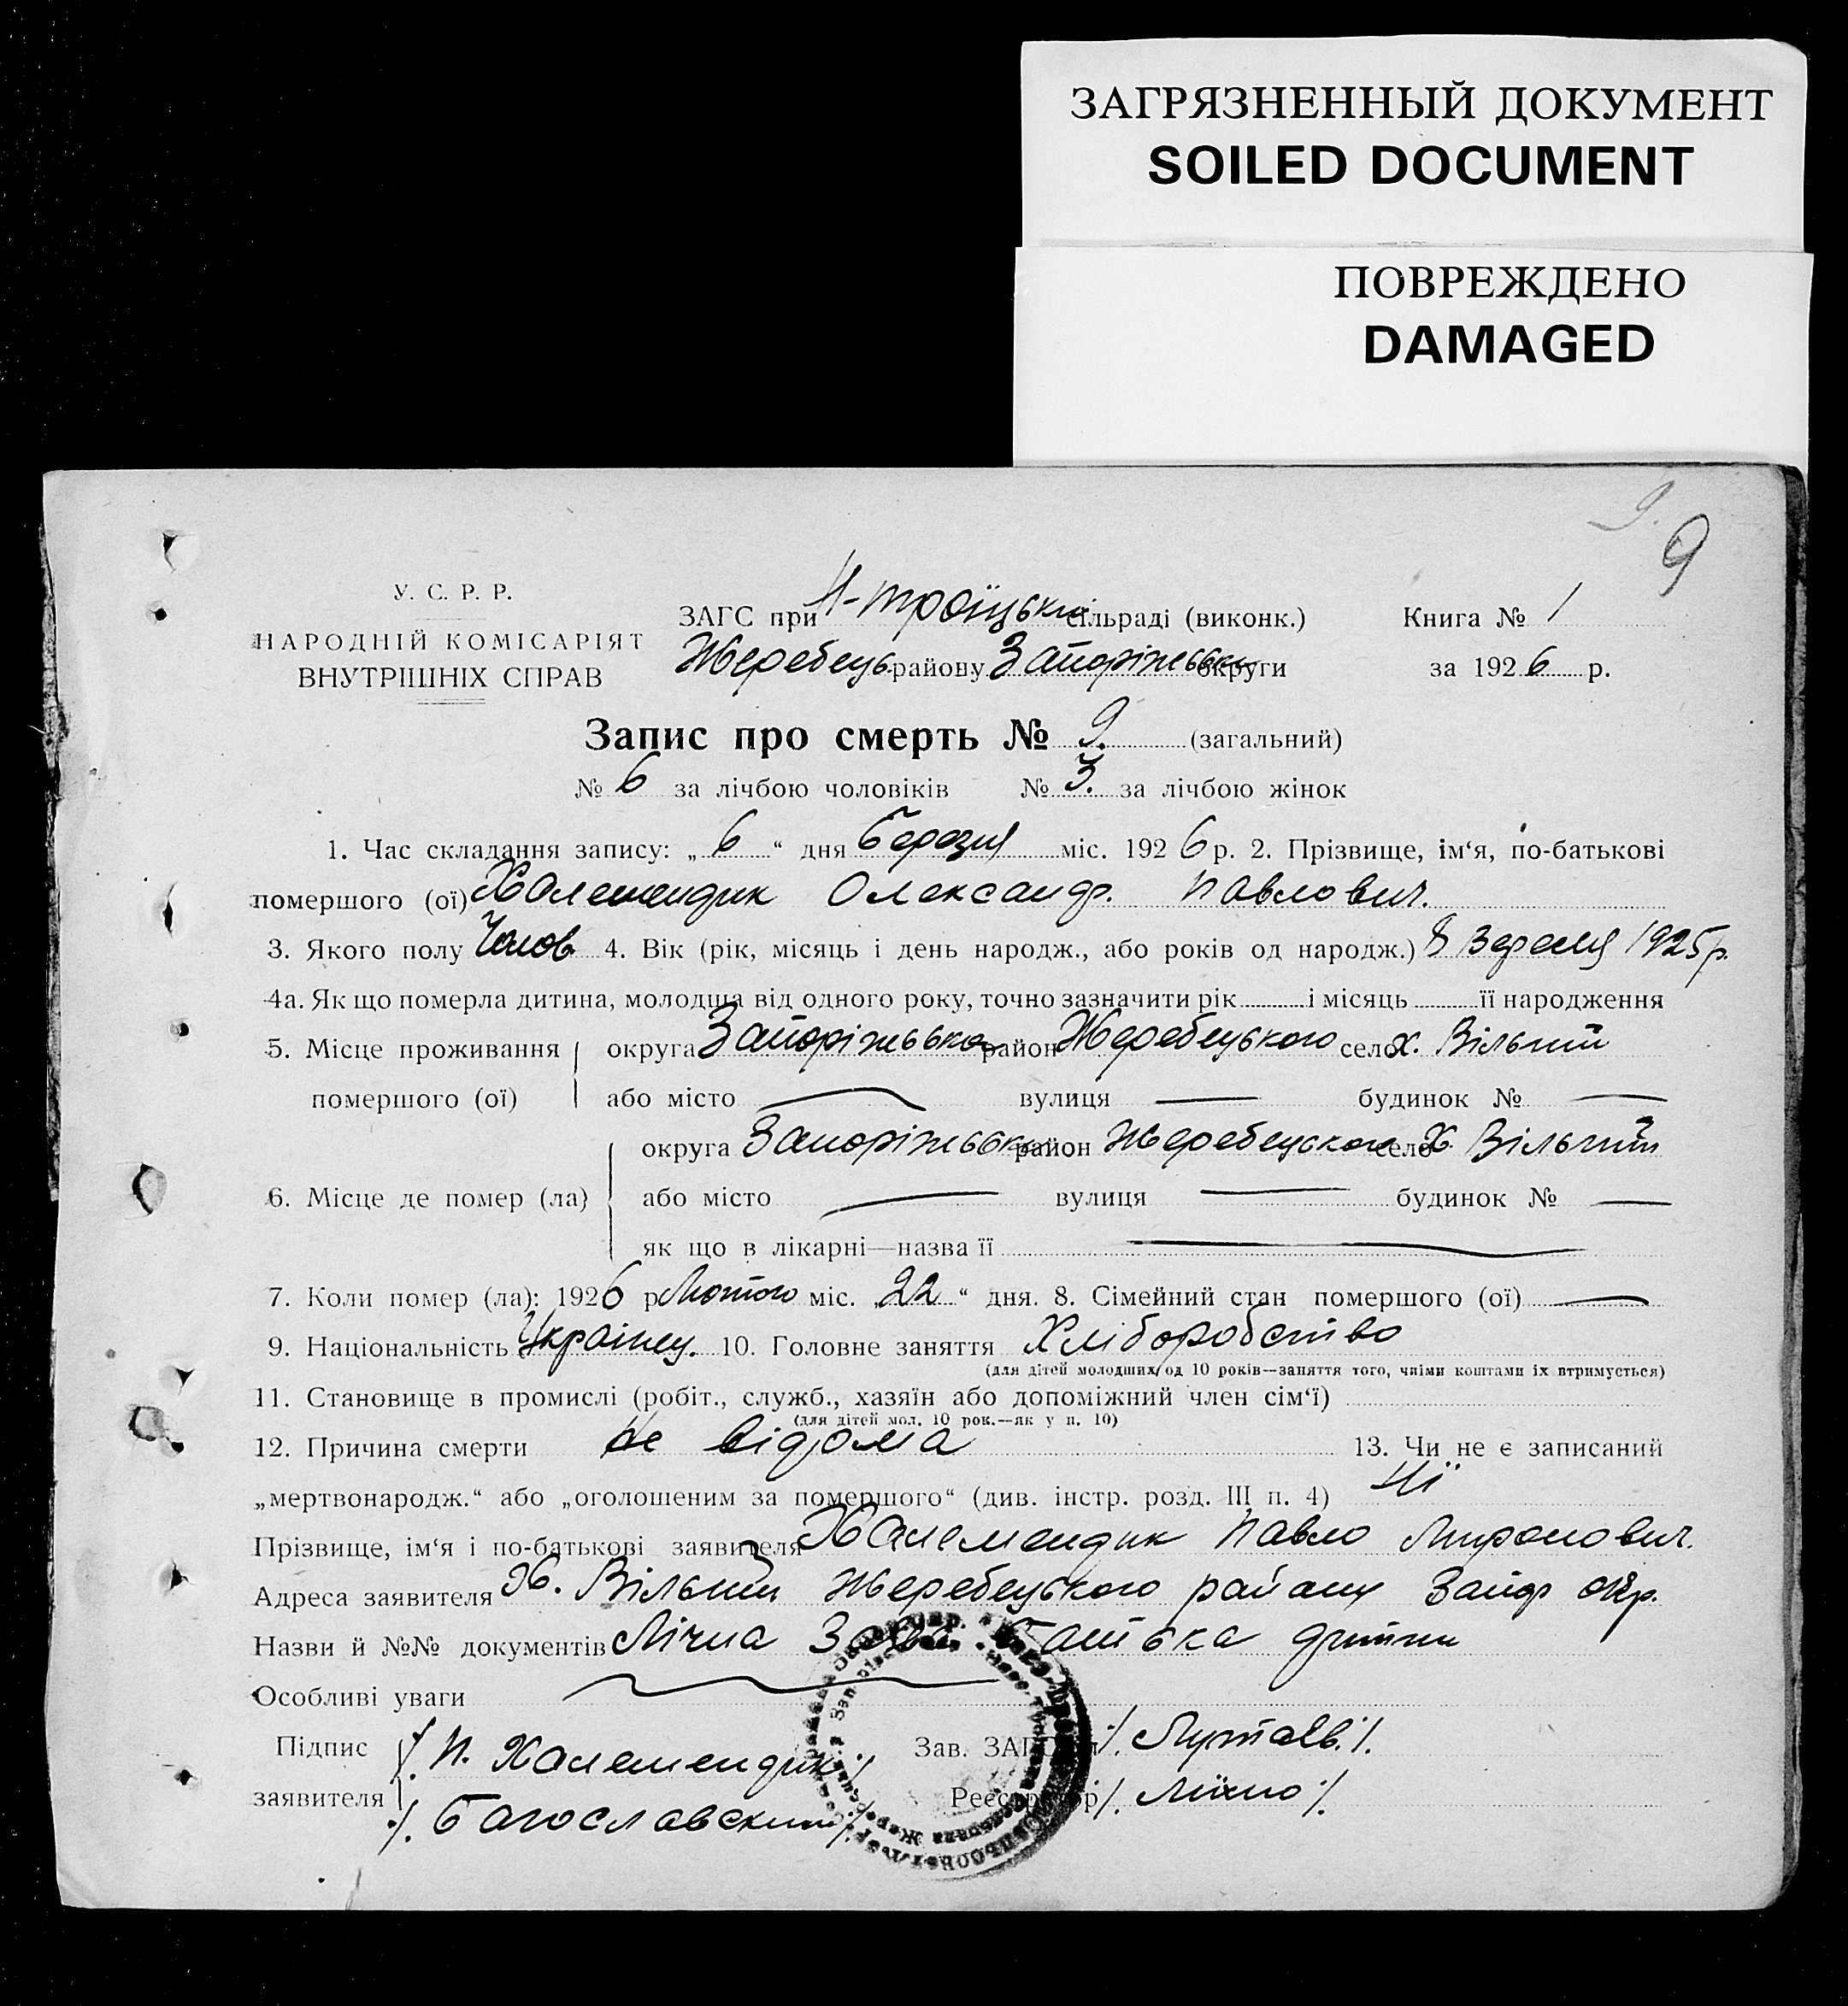 ЗАГРЯЗНЕННЫЙ ДОКУМЕНТ
SOILED DOCUMENT
ПОВРЕЖДЕНО
DAMAGED
9.
9
У. С. Р. Р.
НАРОДНІЙ КОМІСАРІЯТ
ВНУТРІШНІХ СПРАВ
ЗАГС при Н-троїцькій сільраді (виконк.)
Жеребець. району Запоріжськи округи
Книга № 1
за 1926 р.
Запис про смерть № 9. (загальний)
№ 6 за лічбою чоловіків № 3. за лічбою жінок
1. Час складання запису: „ 6 “ дня березня міс. 1926 р. 2. Прізвище, ім‘я, по-батькові
помершого (ої) Халемендик Олександр. Павлович.
3. Якого полу Чолов. 4. Вік (рік, місяць і день народж., або років од народж.) 8 вересня 1925 р.
4а. Як що померла дитина, молодша від одного року, точно зазначити рік і місяць її народження
5. Місце проживання округа Запоріжська район Жеребецького село х. Вільний
помершого (ої) або місто вулиця будинок №
округа Запоріжська район Жеребецького село Х. Вільний
6. Місце де помер (ла) або місто вулиця будинок №
як що в лікарні—назва її
7. Коли помер (ла): 1926 р. Лютого міс. „22“ дня. 8. Сімейний стан помершого (ої)
9. Національність Українец. 10. Головне заняття Хліборобство
(для дітей молодших од 10 років—заняття того, чиїми коштами їх втримується)
11. Становище в промислі (робіт., служб., хазяїн або допоміжний член сім‘ї)
(для дітей мол. 10 рок.—як у п. 10)
12. Причина смерти не відома 13. Чи не є записаний
„мертвонародж.“ або „оголошеним за помершого“ (див. інстр. розд. III п. 4) Ні
Прізвище, ім‘я і по-батькові заявителя Халемендик Павло Миронович.
Адреса заявителя Х. Вільний Жеребецького району Запор окр.
Назви й №№ документів Лічна Заява батька дитини
Особливі уваги
Підпис /. П. Халемендик ./ Зав. ЗАГС /. ./.
заявителя /. Богославский ./ Реєстратор /. ./.